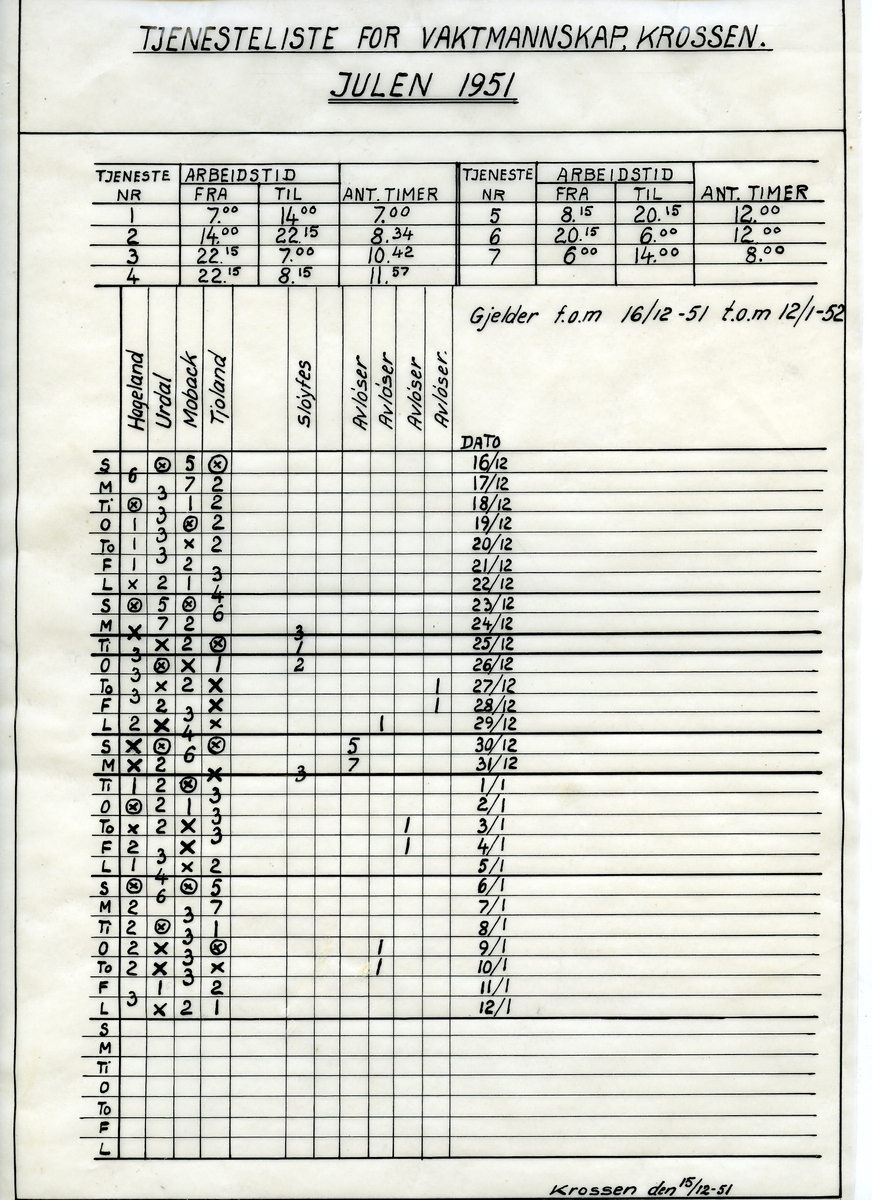 TJENESTELISTE FOR VAKTMANNSKAP, KROSSEN.
JULEN 1951
TJENESTE NR ARBEIDSTID FRA TIL ANT. TIMER TJENESTE NR ARBEIDSTID FRA TIL ANT. TIMER
1 7.00 14.00 7.00 5 8.15 20.15 12.00
2 14.00 22.15 8.34 6 20.15 6.00 12.00
3 22.15 7.00 10.42 7 6.00 14.00 8.00
4 22.15 8.15 11.57
Gjelder f.o.m 16/12-51 t.o.m 12/1-52
Hageland Urdal Moback Tjoland Slöyfes Avlöser Avlöser Avlöser Avlöser.
DATO
S 6 ⊗ 5 ⊗ 16/12
M 3 7 2 17/12
Ti ⊗ 3 1 2 18/12
O 1 3 ⊗ 2 19/12
To 1 3 x 2 20/12
F 1 2 3 21/12
L x 2 1 4 22/12
S ⊗ 5 ⊗ 6 23/12
M x 7 2 3 24/12
Ti 3 x 2 ⊗ 1 25/12
O 3 ⊗ x 1 2 26/12
To 3 x 2 x 1 27/12
F 2 3 x 1 28/12
L 2 x 4 x 1 29/12
S x ⊗ 6 ⊗ 5 30/12
M x 2 x 3 7 31/12
Ti 1 2 ⊗ 3 1/1
O ⊗ 2 1 3 2/1
To x 2 x 3 1 3/1
F 2 3 x 1 4/1
L 1 4 x 2 5/1
S ⊗ 6 ⊗ 5 6/1
M 2 3 7 7/1
Ti 2 ⊗ 3 1 8/1
O 2 x 3 ⊗ 1 9/1
To 2 x 3 x 1 10/1
F 3 1 2 11/1
L x 2 1 12/1
S
M
Ti
O
To
F
L
Krossen den 15/12-51